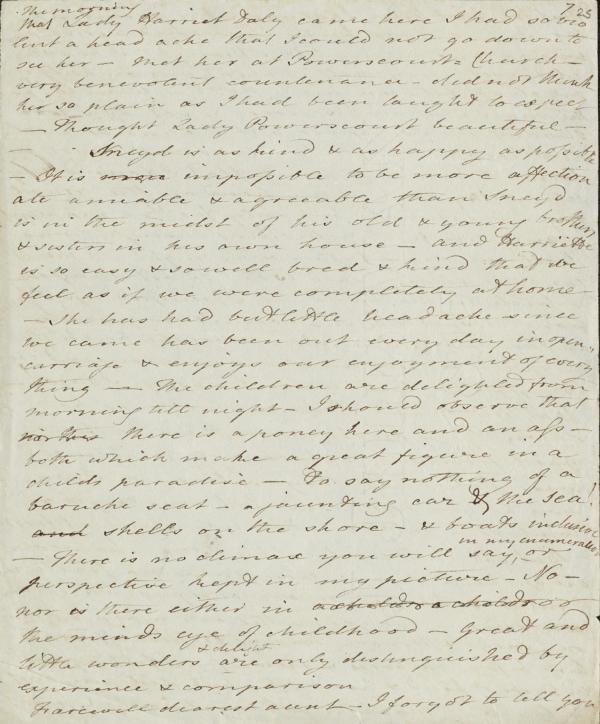 The morning 7. 25
that Lady Harriet Daly came here I had so vio
lent a head ache that I could not go down to
see her — met her at Powerscourt Church —
very benevolent countenance — did not think
her so plain as I had been taught to expect
— Thought Lady Powerscourt beautiful —
— Sneyd is as kind & as happy as possible
— It is impossible to be more affection
ate amiable & agreeable than Sneyd
is in the midst of his old & young brothers
& sisters in his own house — and Harriette
is so easy & so well bred & kind that we
feel as if we were completely at home —
— She has had but little headache since
we came has been out every day in open
carriage & enjoys our enjoyment of every
thing — The children are delighted from
morning till night — I should observe that
nor this there is a poney here and an ass —
both which make a great figure in a
childs paradise — To say nothing of a
barouche seat — a jaunting car & the sea!
and shells on the shore — & boats inclusive
in my enumeration
— There is no climax you will say, or
perspective kept in my picture — No —
nor is there either in a childs a childs or
the minds eye of childhood — Great and
& delight
little wonders are only distinguished by
experience & comparison
Farewell dearest aunt — I forgot to tell you